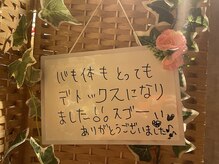 心も体もとっても
デトックスになり
ました!!。スゴーい
ありがとうございました